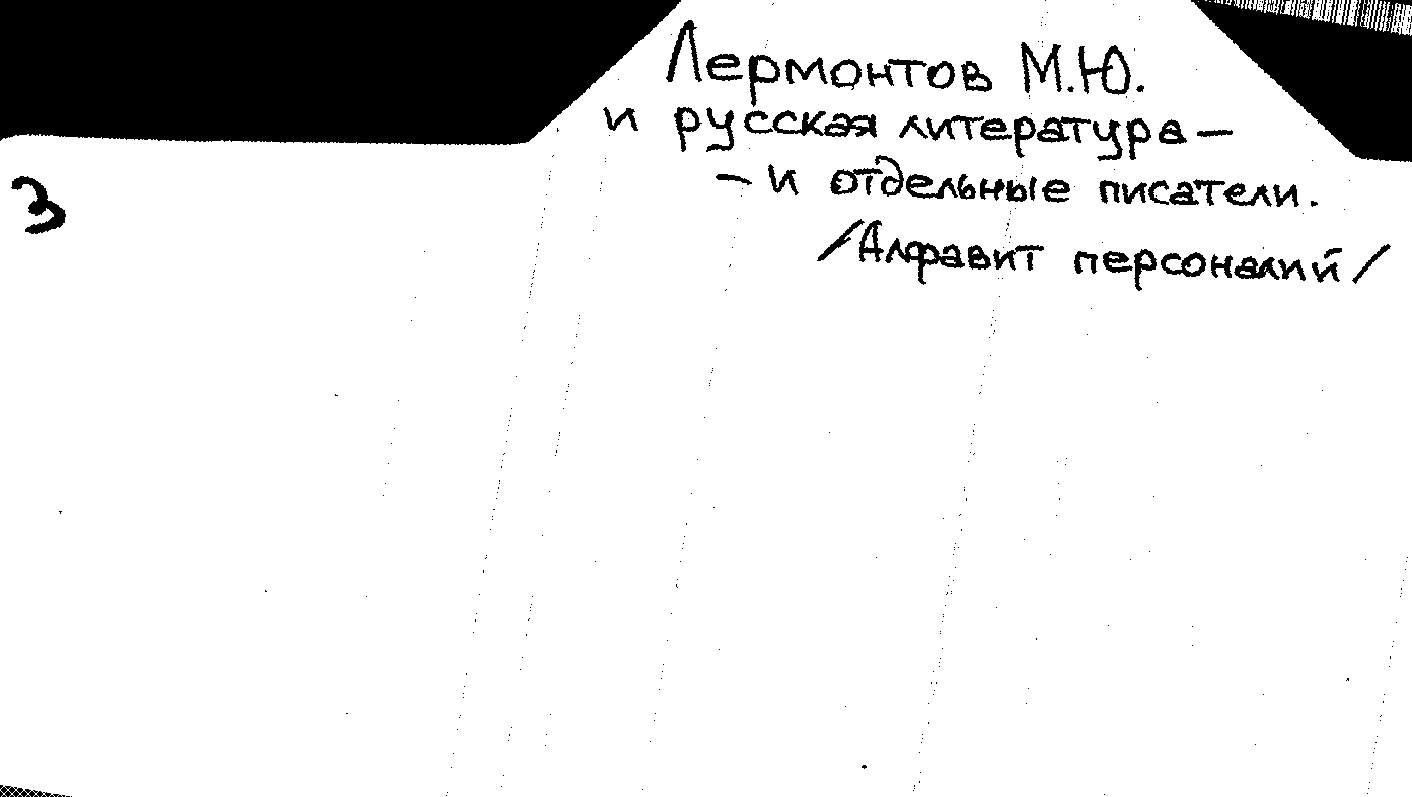 Лермонтов М.Ю.
и русская литература –
– и отдельные писатели.
/Алфавит персоналий/
3